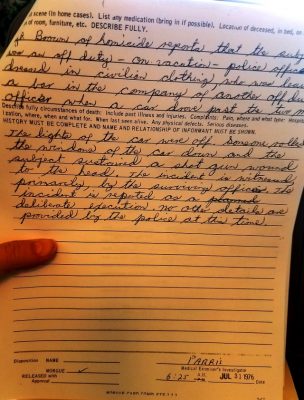 scene (In home cases). List any medication (bring in if possible). Location of deceased, in bed, on
of room, furniture, etc. DESCRIBE FULLY.
Borum of homicide reports that the subj
an off duty - on vacation - police offi
dressed in civilian clothing who was leav
a bar in the company of another off d
officer when a car drove past the two m
Describe fully circumstances of death: Include past illness and injuries. Complaints: Pain, where and what
ization, where, when and what for. When last seen alive. Any physical defects. Servic diseases.
HISTORY MUST BE COMPLETE AND NAME AND RELATIONSHIP OF INFORMANT MUST BE SHOWN.
The lights of the car were off. Someone rolled
the windows of the car down and the
subject sustained a shot gun wound
to the head. The incident is witnessed,
primarily, by the surviving officer. The
incident is reported as a planned
deliberate execution. no other details are
provided by the police at this time.
Disposition NAME
PARRIS
Medical Examiner's Investigator
MORGUE ✓
RELEASED with
Approval
6:25 JUL 31 1976